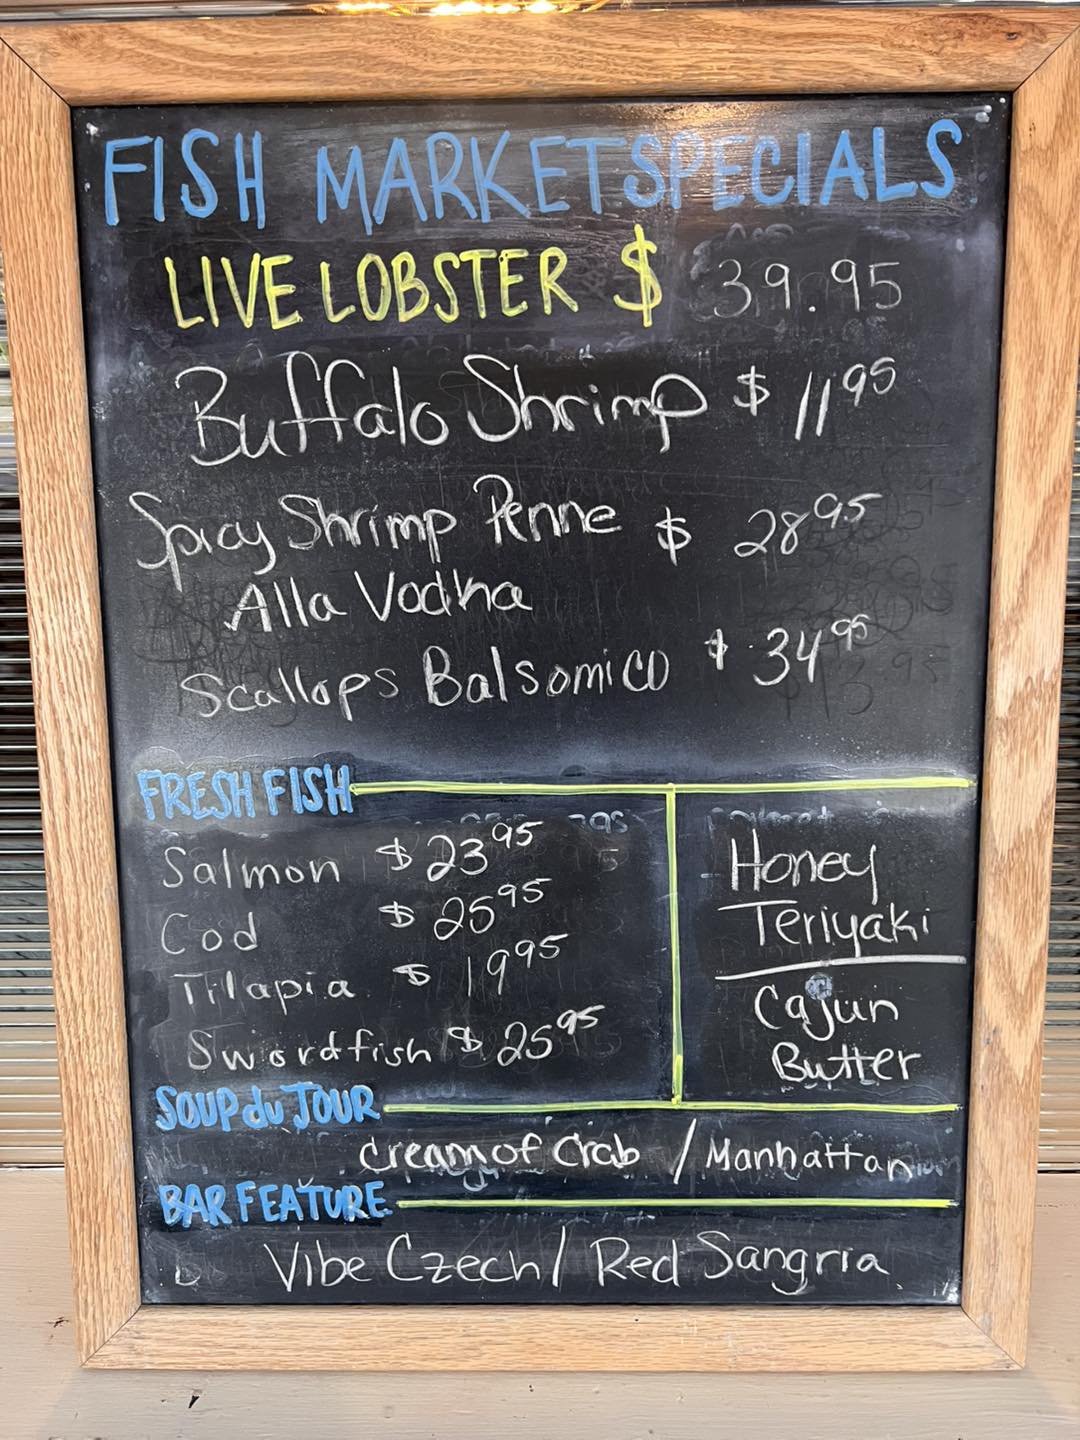 FISH MARKET SPECIALS
LIVE LOBSTER $ 39.95
Buffalo Shrimp $ 11 95
Spicy Shrimp Penne $ 28 95
Alla Vodka
Scallops Balsomico $ 34 95
FRESH FISH
Salmon $ 23 95
Cod $ 25 95
Tilapia $ 19 95
Swordfish $ 25 95
Honey
Teriyaki
Cajun
Butter
SOUP du JOUR
Cream of Crab / Manhattan
BAR FEATURE
Vibe Czech / Red Sangria